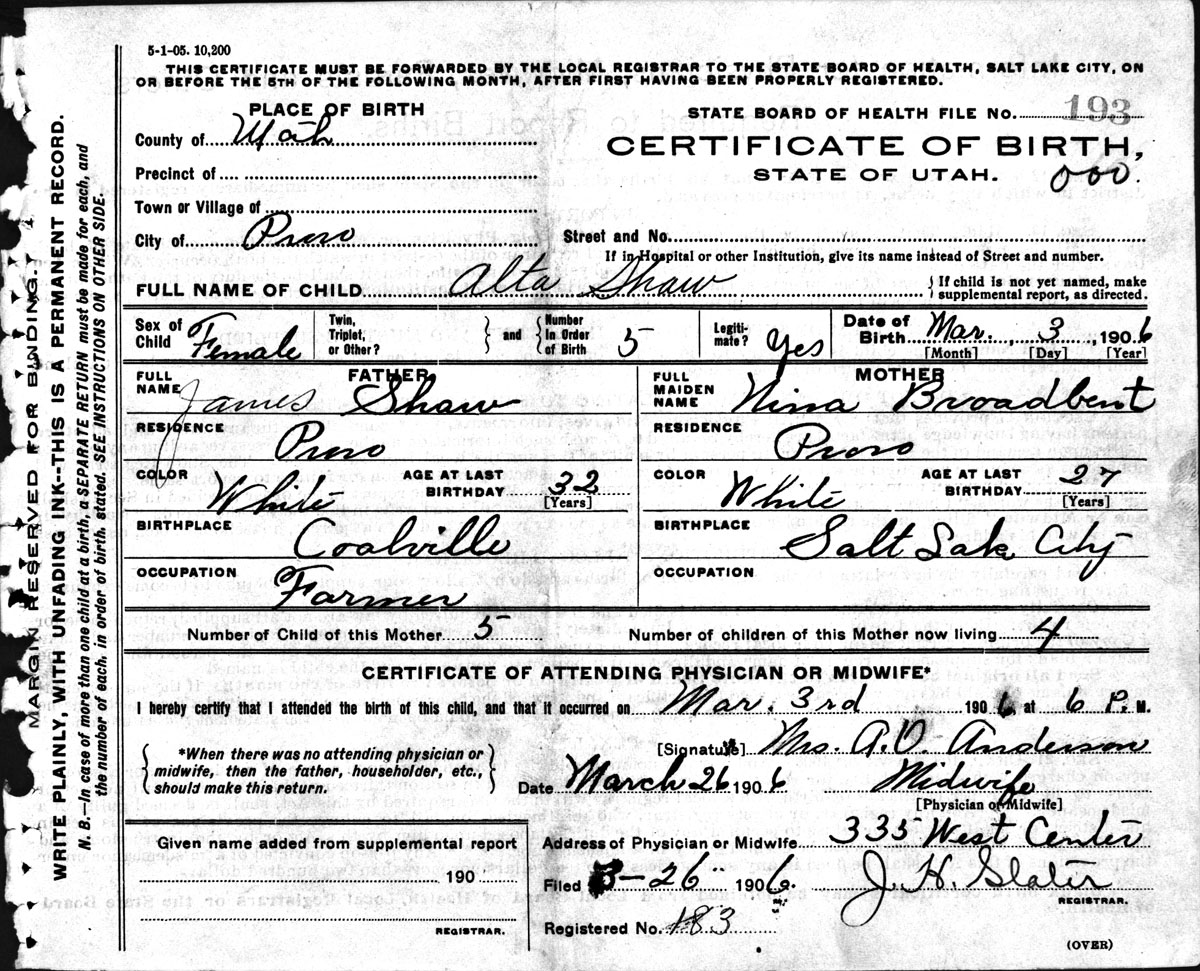 5-1-05. 10,200
THIS CERTIFICATE MUST BE FORWARDED BY THE LOCAL REGISTRAR TO THE STATE BOARD OF HEALTH, SALT LAKE CITY, ON
OR BEFORE THE 5TH OF THE FOLLOWING MONTH, AFTER FIRST HAVING BEEN PROPERLY REGISTERED.
PLACE OF BIRTH
STATE BOARD OF HEALTH FILE NO. 193
County of Utah
CERTIFICATE OF BIRTH,
Precinct of
STATE OF UTAH.
Town or Village of
City of Provo
Street and No.
If in Hospital or other Institution, give its name instead of Street and number.
FULL NAME OF CHILD Alta Shaw } If child is not yet named, make
supplemental report, as directed.
Sex of Child Female
Twin, Triplet, or Other? } and { Number In Order of Birth 5
Legiti- mate? Yes
Date of Birth Mar. 3, 1906
[Month] [Day] [Year]
FATHER
FULL NAME James Shaw
RESIDENCE Provo
COLOR White AGE AT LAST BIRTHDAY 32
[Years]
BIRTHPLACE Coalville
OCCUPATION Farmer
MOTHER
FULL MAIDEN NAME Nina Broadbent
RESIDENCE Provo
COLOR White AGE AT LAST BIRTHDAY 27
[Years]
BIRTHPLACE Salt Lake City
OCCUPATION
Number of Child of this Mother 5 Number of children of this Mother now living 4
CERTIFICATE OF ATTENDING PHYSICIAN OR MIDWIFE*
I hereby certify that I attended the birth of this child, and that it occurred on Mar. 3rd 1906 at 6 P. M.
{ *When there was no attending physician or
midwife, then the father, householder, etc.,
should make this return. }
[Signature] Mrs. A.D. Anderson
Date March 26 1906 Midwife
[Physician or Midwife]
Given name added from supplemental report
190
REGISTRAR.
Address of Physician or Midwife 335 West Center
Filed 3-26 1906. J. H. Slater
REGISTRAR.
Registered No. 183
(OVER)
MARGIN RESERVED FOR BINDING.
WRITE PLAINLY, WITH UNFADING INK--THIS IS A PERMANENT RECORD.
N. B.—In case of more than one child at a birth, a SEPARATE RETURN must be made for each, and
the number of each, in order of birth, stated. SEE INSTRUCTIONS ON OTHER SIDE.